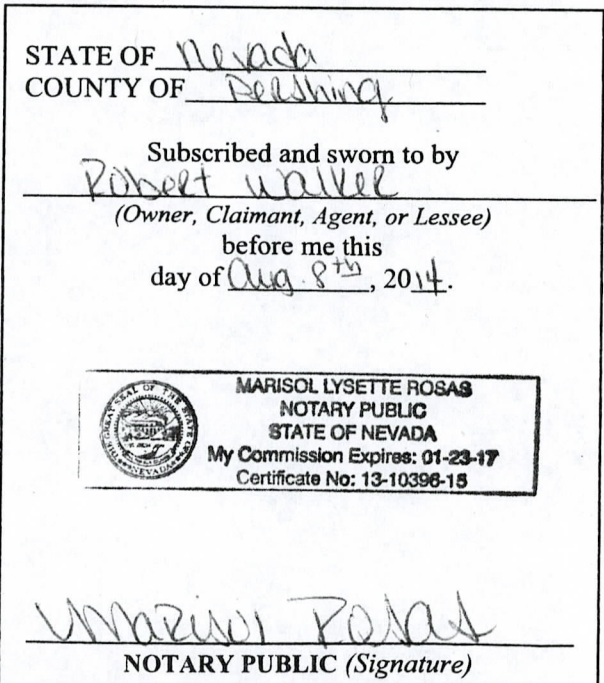 STATE OF Nevada
COUNTY OF Pershing
Subscribed and sworn to by
Robert Walker
(Owner, Claimant, Agent, or Lessee)
before me this
day of Aug. 8th, 2014.
THE GREAT SEAL OF THE STATE OF NEVADA
MARISOL LYSETTE ROSAS
NOTARY PUBLIC
STATE OF NEVADA
My Commission Expires: 01-23-17
Certificate No: 13-10396-15
Marisol Rosas
NOTARY PUBLIC (Signature)